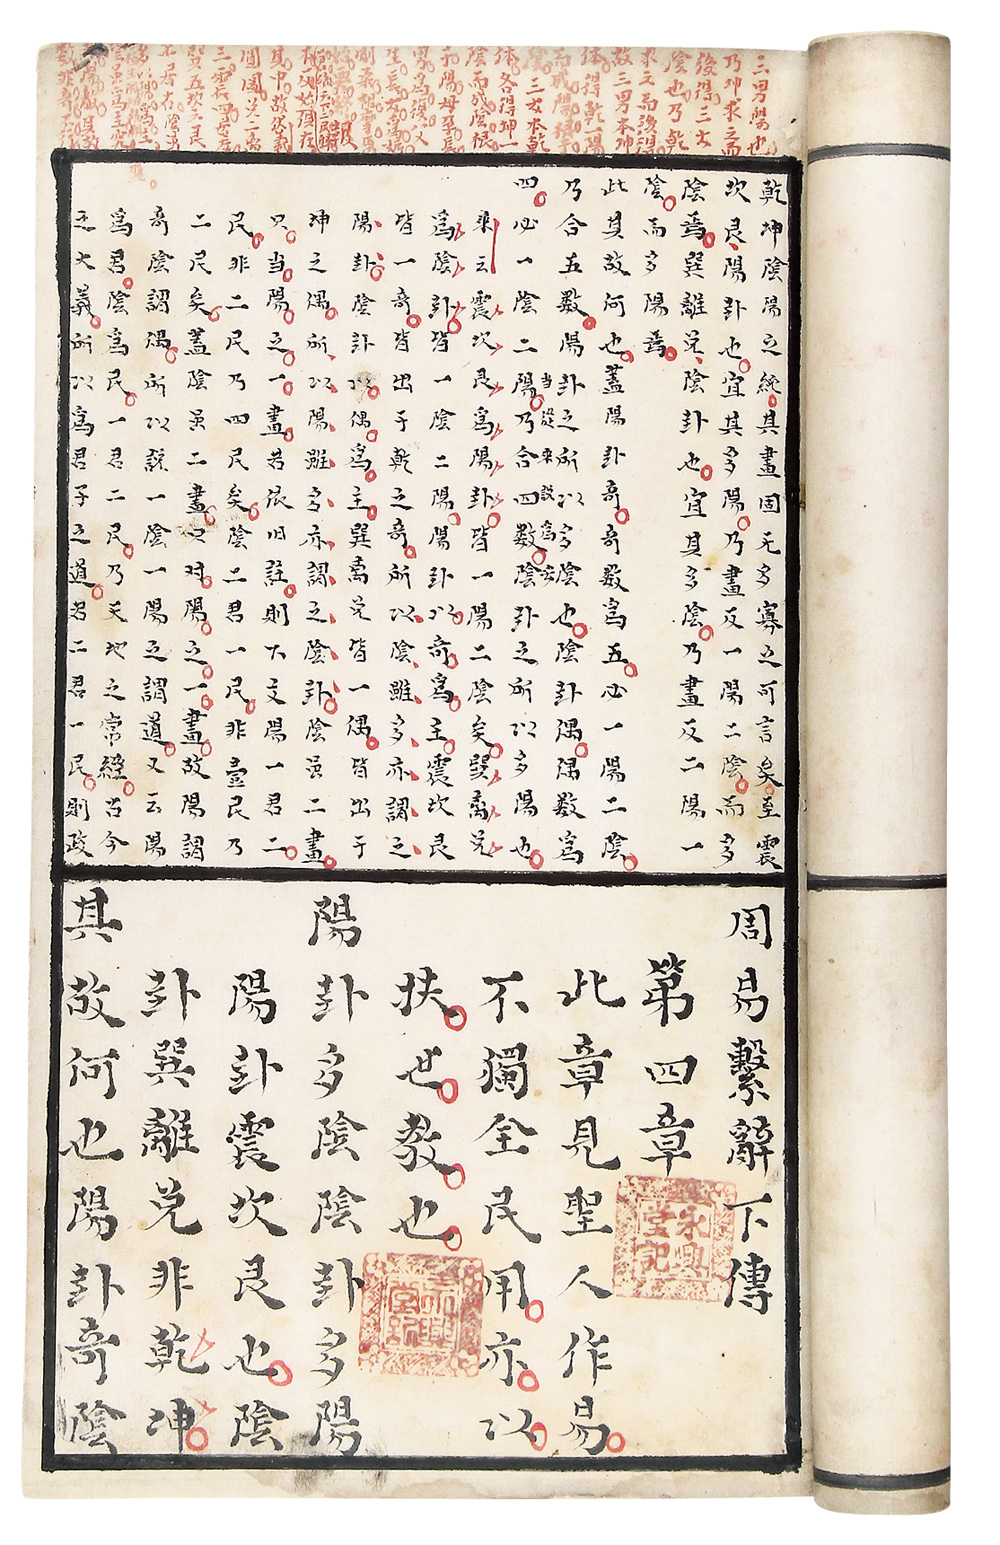 三男陽也
乃坤求之而
後得三女
陰也乃乾
求之而後得
故三男本坤
體得乾一陽
而成陽
三女本乾
體各得坤一
陰而成陰根
乾坤陰陽之統其畫固无多寡之可言矣至震
坎艮陽卦也宜其多陽乃畫反一陽二陰而多
陰焉巽離兌陰卦也宜其多陰乃畫反二陽一
陰而多陽焉
此其故何也蓋陽卦奇奇數為五必一陽二陰
乃合五數陽卦之所以多陰也陰卦偶偶數為
四必一陰二陽乃合四數陰卦之所以多陽也
當從來說為安
來云震坎艮為陽卦皆一陽二陰矣巽离兌
為陰卦皆一陰二陽陽卦以奇為主震坎艮
皆一奇皆出于乾之奇所以陰雖多亦謂之
陽卦陰卦以偶為主巽离兌皆一偶皆出于
坤之偶所以陽雖多亦謂之陰卦陰虽二畫
只當陽之一畫若依旧註則下文陽一君二
民非二民乃四民矣陰二君一民非壹民乃
二民矣蓋陰虽二畫只对陽之一畫故陽謂
奇陰謂偶所以說一陰一陽之謂道又云陽
為君陰為民一君二民乃天地之常經古今
之大義所以為君子之道若二君一民則政
周易繫辭下傳
第四章
此章見聖人作易
不獨全民用亦以
扶世教也
陽卦多陰陰卦多陽
陽卦震坎艮也陰
卦巽離兌非乾坤
其故何也陽卦奇陰
永興
堂記
永興
堂記